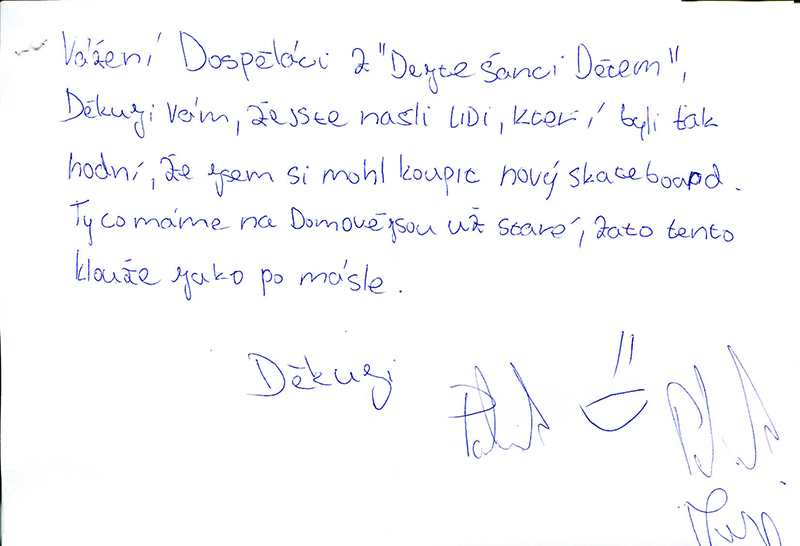 Vážení Dospěláci z "Dejte šanci Dětem",
Děkuji vám, že jste nasli lidi, kteří byli tak
hodní, že jsem si mohl koupit nový skateboard.
Ty co máme na Domově jsou už staré, zato tento
klouže jako po másle.
Děkuji